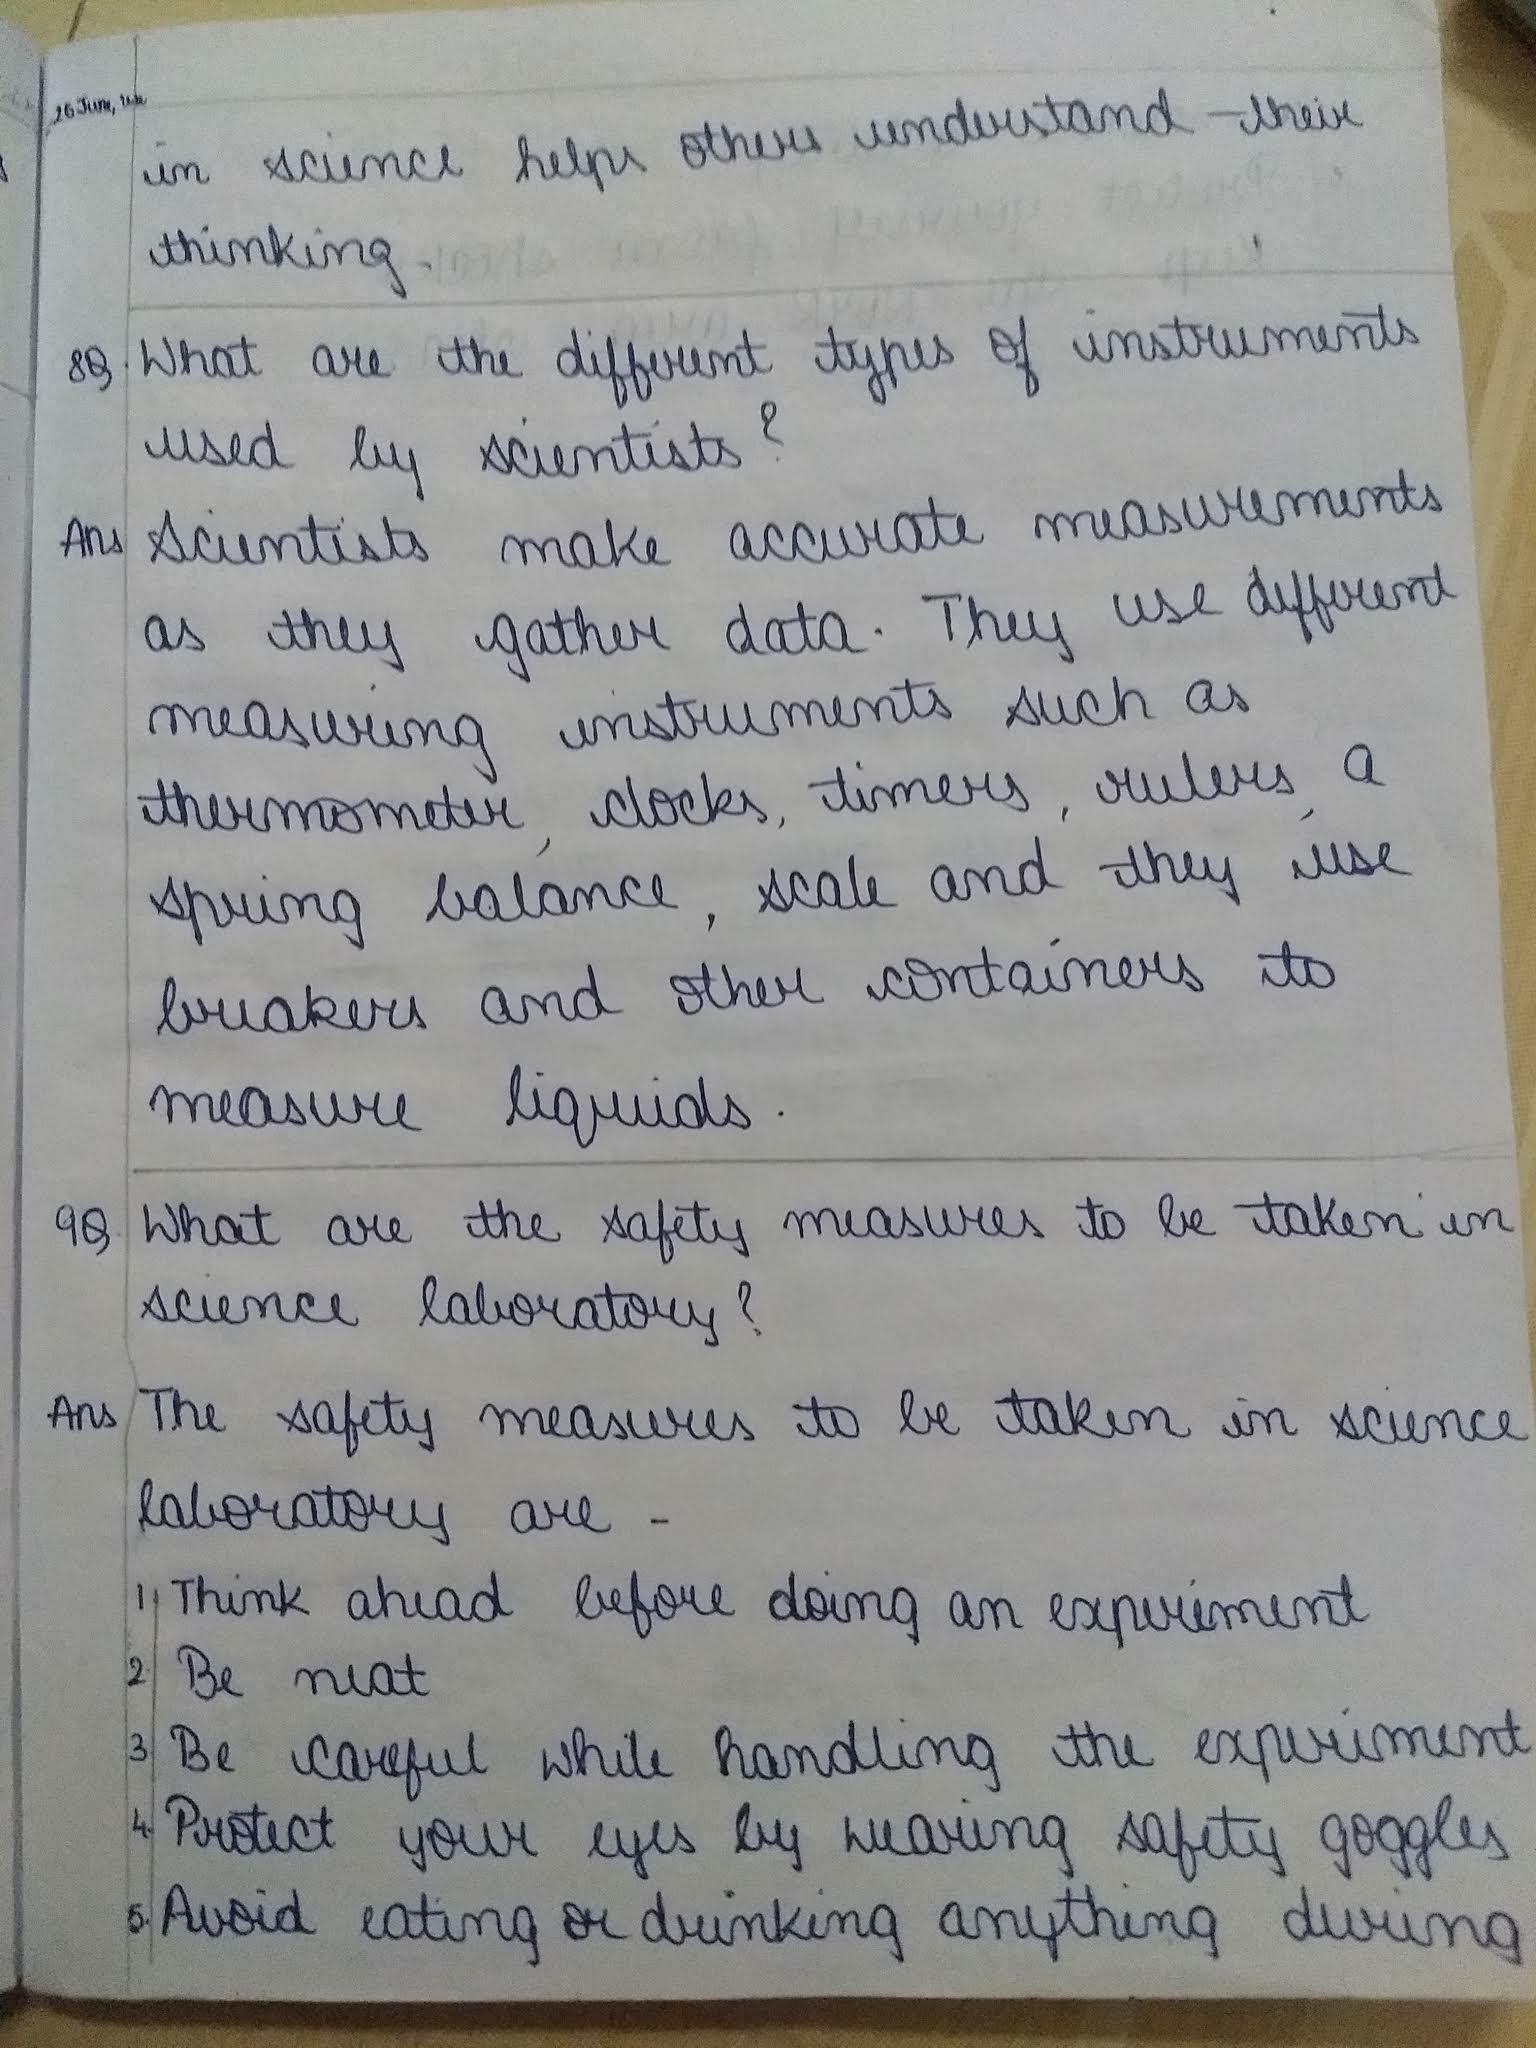 26 June,
in science helps others understand their
thinking.
8Q. What are the different types of instruments
used by scientists?
Ans Scientists make accurate measurements
as they gather data. They use different
measuring instruments such as
thermometer, clocks, timers, rulers, a
spring balance, scale and they use
breakers and other containers to
measure liquids.
9Q What are the safety measures to be taken in
science laboratory?
Ans The safety measures to be taken in science
laboratory are -
1 Think ahead before doing an experiment
2 Be neat
3 Be careful while handling the experiment
4 Protect your eyes by wearing safety goggles
5. Avoid eating or drinking anything during